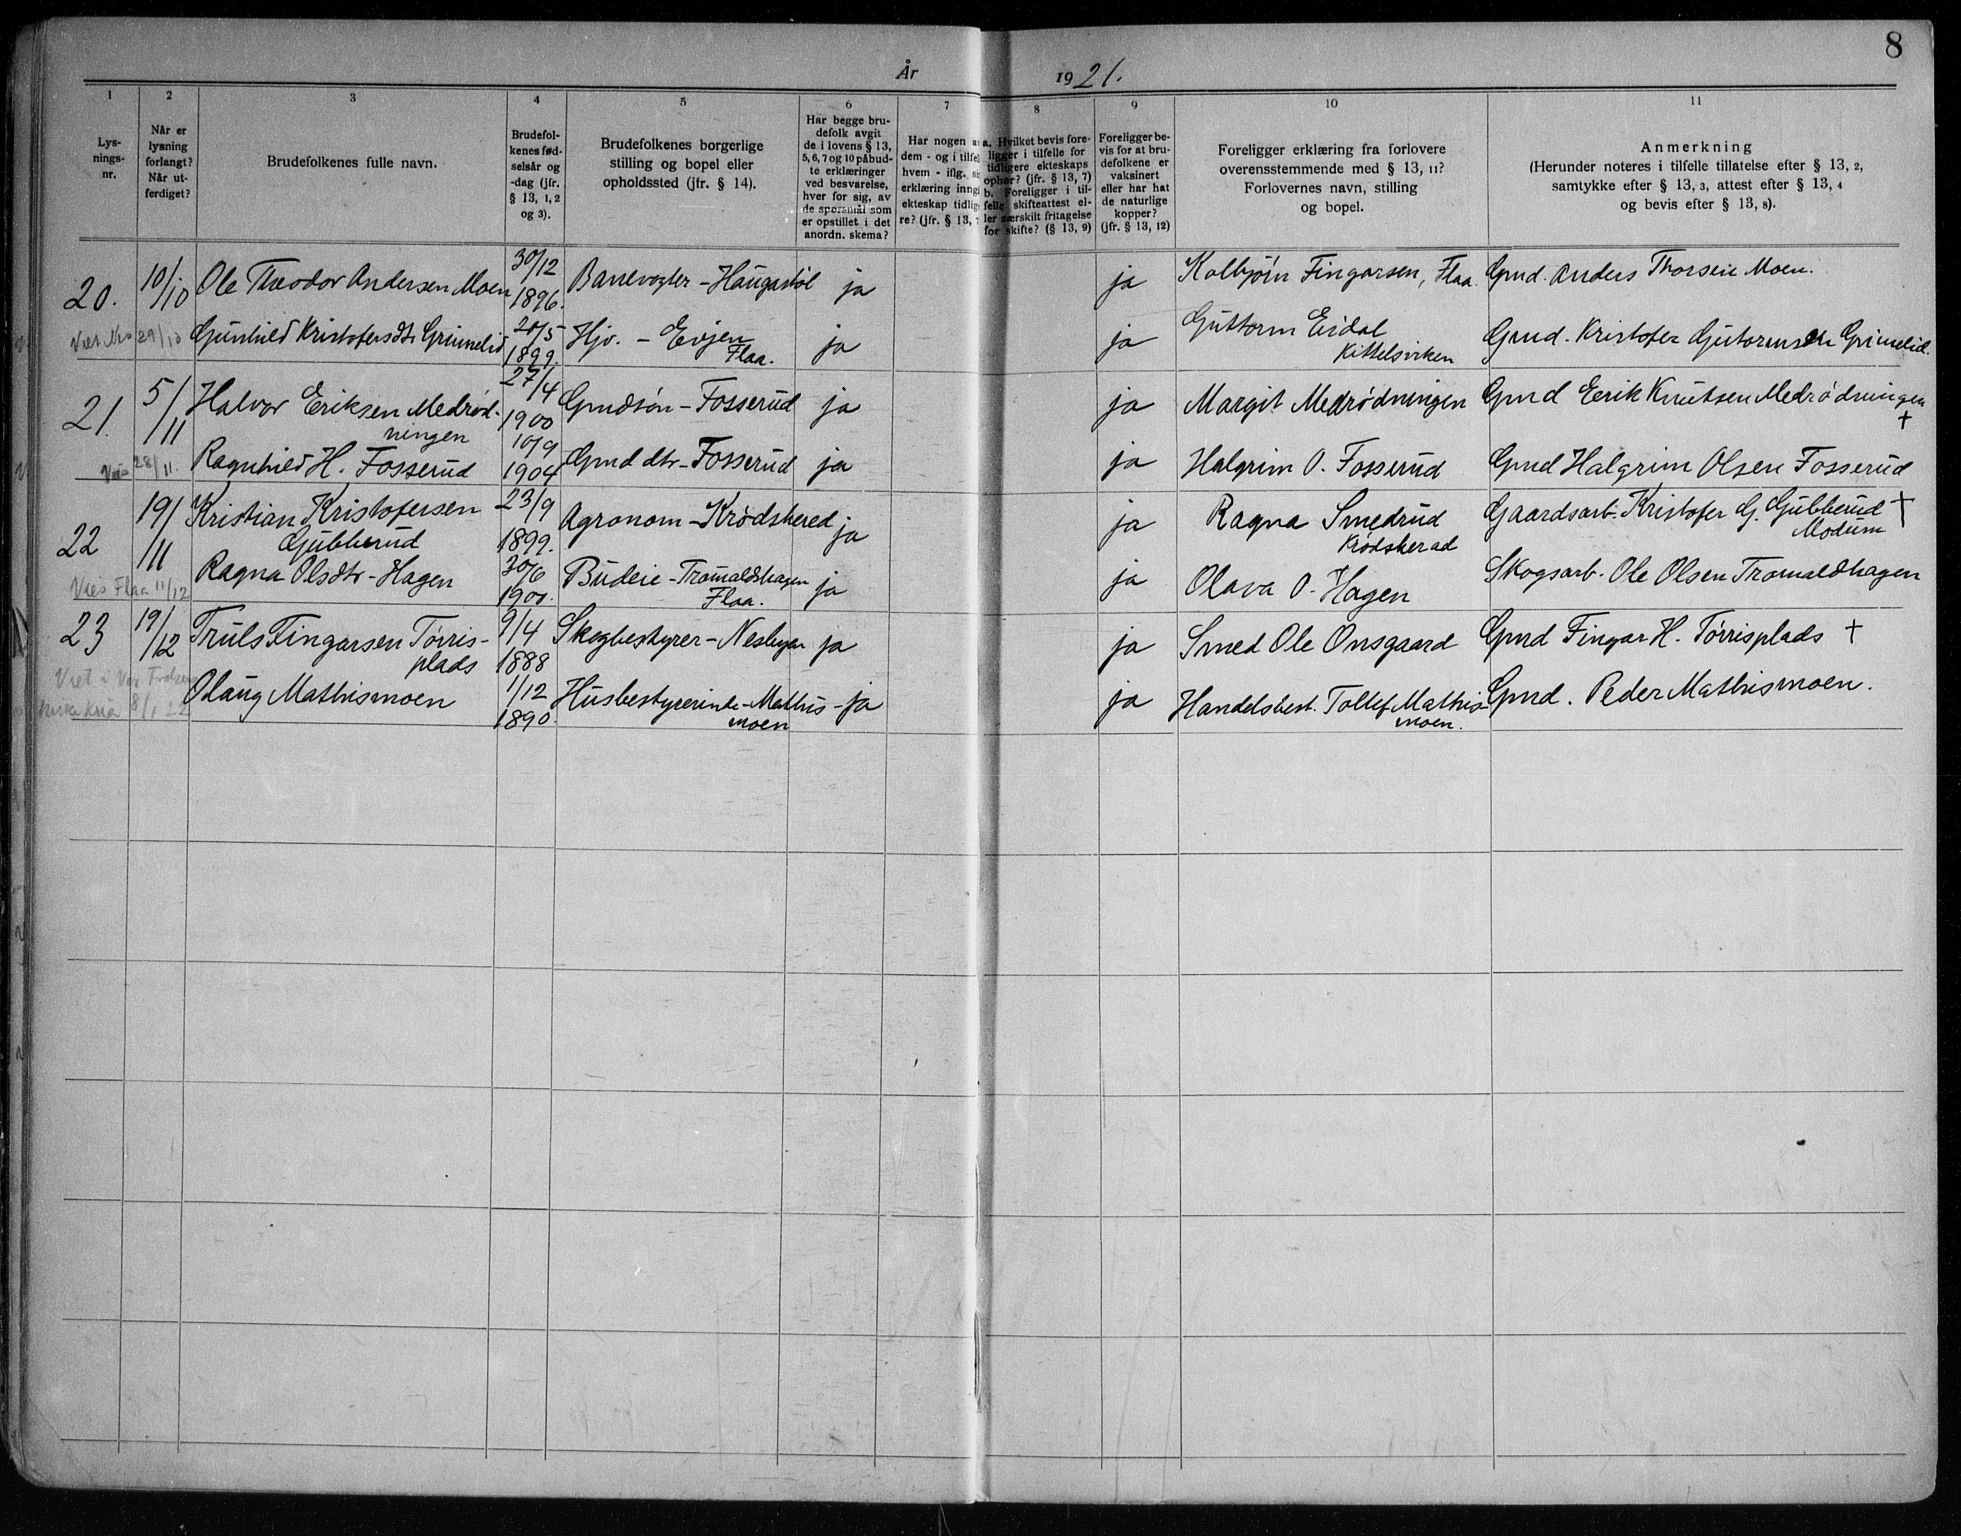 8
År 1921.
1 2 3 4 5 6 7 8 9 10 11
Lys-
nings-
nr.
Når er
lysning
forlangt?
Når ut-
ferdiget?
Brudefolkenes fulle navn.
Brudefol-
kenes fød-
selsår og
-dag (jfr.
§ 13, 1, 2
og 3).
Brudefolkenes borgerlige
stilling og bopel eller
opholdssted (jfr. § 14).
Har begge bru-
defolk avgit
de i lovens § 13,
5, 6, 7 og 10 påbud-
te erklæringer
ved besvarelse,
hver for sig, av
de spørsmål som
er opstillet i det
anordn. skema?
Har nogen a
dem - og i tilfel
hvem - iflg. s
erklæring inngå
ekteskap tidlig
re? (jfr. § 13, 7
a. Hvilket bevis fore-
ligger i tilfelle for
tidligere ekteskaps
ophør? (jfr. § 13, 7)
b. Foreligger i til-
felle skifteattest el-
ler særskilt fritagelse
for skifte? (§ 13, 9)
Foreligger be-
vis for at bru-
defolkene er
vaksinert
eller har hat
de naturlige
kopper?
(jfr. § 13, 12)
Foreligger erklæring fra forlovere
overensstemmende med § 13, 11?
Forlovernes navn, stilling
og bopel.
Anmerkning
(Herunder noteres i tilfelle tillatelse efter § 13, 2,
samtykke efter § 13, 3, attest efter § 13, 4
og bevis efter § 13, 8).
20. 10/10 Ole Theodor Andersen Moen 30/12 1896. Banevogter - Haugastøl ja ja Kolbjörn Fingarsen, Flaa. Gmd. Anders Thorsen Moen.
Viet Nes 29/10 Gunhild Kristofersdtr Grimelid 20/5 1899. Hjv. - Evjen ja ja Guttorm Eidal Gmd. Kristofer Gutormsen Grimelid.
Flaa. Kittelsviken
21. 5/11 Halvor Eriksen Medrød- 27/4 1900 Gmdsön - Fosserud ja ja Margit Medrødningen Gmd Eerik Knutsen Medrødningen
ningen +
28/11. Ragnhild H. Fosserud 10/9 1904 Gmd dtr - Fosserud ja ja Halgrim O. Fosserud Gmd Halgrim Olsen Fosserud
22 19/11 Kristian Kristofersen 23/9 1899. Agronom - Krødshered ja ja Ragna Smedrud Gaardsarb. Kristofer G. Gubberud +
Gubberud Krødsherad Modum
Vies Flaa 11/12 Ragna Olsdtr - Hagen 30/6 1900. Budeie - Tromaldshagen ja ja Olava O. Hagen Skogsarb. Ole Olsen Tromaldhagen
Flaa.
23 19/12 Truls Fingarsen Tørris- 9/4 1888 Skogbestyrer - Nesbyen ja ja Smed Ole Onsgaard Gmd Fingar H. Tørrisplads +
plads
Viet i Vor
8/1 22 Olaug Mathismoen 1/12 1890. Husbestyrerinde - Mathis- ja ja Handelsbest. Tollef Mathis- Gmd. Peder Mathismoen.
moen moen.